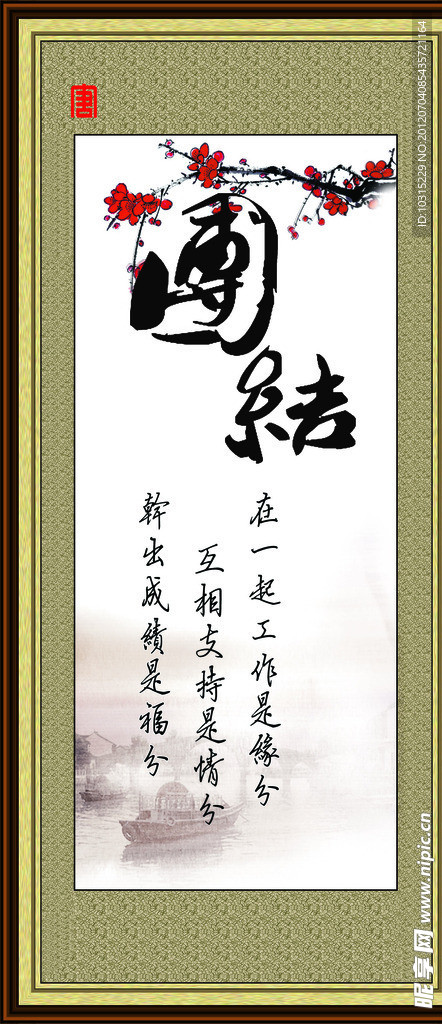 團結
在一起工作是緣分
互相支持是情分
幹出成績是福分
ID:10315229 NO:20120704085435721164
昵享网 www.nipic.cn